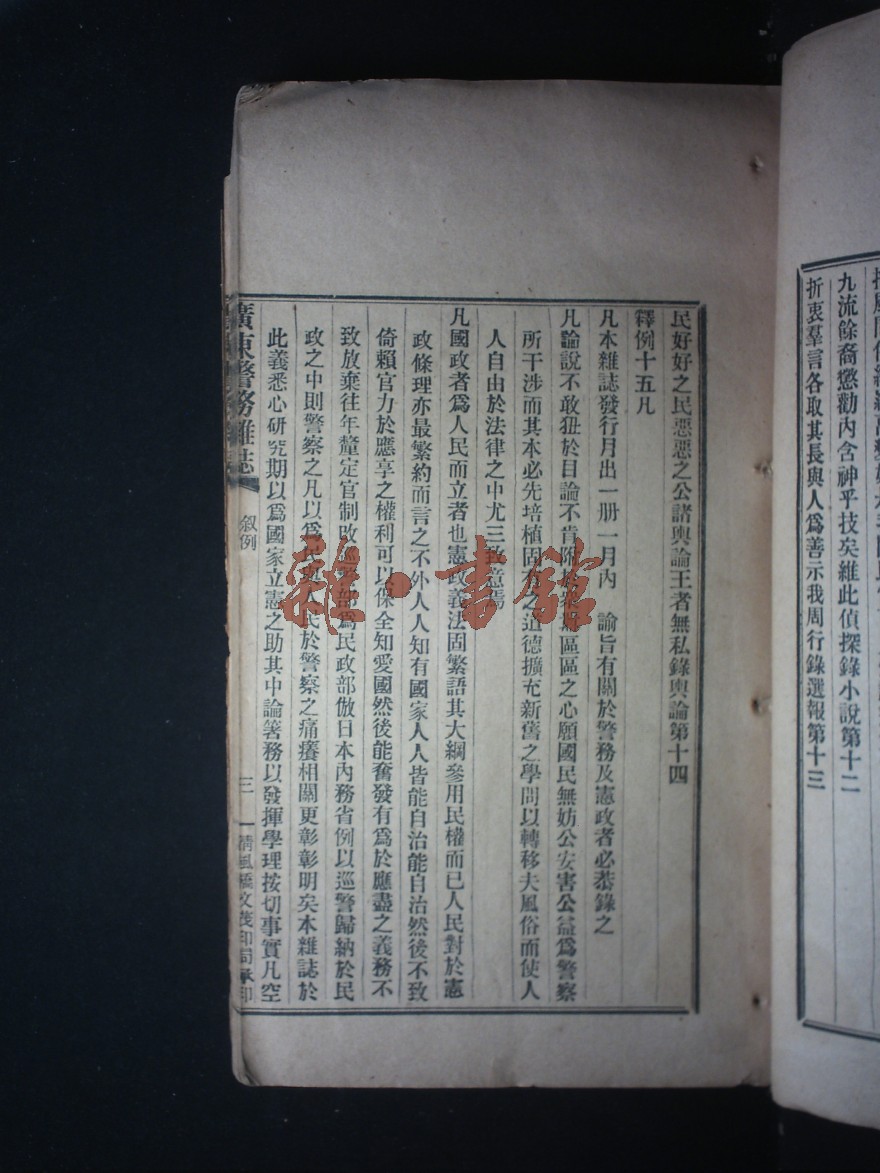 九流餘裔懲勸內含神乎技矣維此偵探錄小說第十二
折衷羣言各取其長與人爲善示我周行錄選報第十三
民好好之民惡惡之公諸輿論王者無私錄輿論第十四
釋例十五凡
凡本雜誌發行月出一册一月內　諭旨有關於警務及憲政者必恭錄之
凡論說不敢狃於目論不肯附區區之心願國民無妨公安害公益爲警察
所干涉而其本必先培植固有之道德擴充新舊之學問以轉移夫風俗而使人
人自由於法律之中尤三致意焉
凡國政者爲人民而立者也憲政義法固繁語其大綱參用民權而已人民對於憲
政條理亦最繁約而言之不外人人知有國家人人皆能自治能自治然後不致
倚賴官力於應享之權利可以保全知愛國然後能奮發有爲於應盡之義務不
致放棄往年釐定官制改巡警部爲民政部倣日本內務省例以巡警歸納於民
政之中則警察之凡以爲民與人民於警察之痛癢相關更彰彰明矣本雜誌於
此義悉心研究期以爲國家立憲之助其中論箸務以發揮學理按切事實凡空
廣東警務雜誌
敍例
三
清風橋文茂印局承印
雜·書館